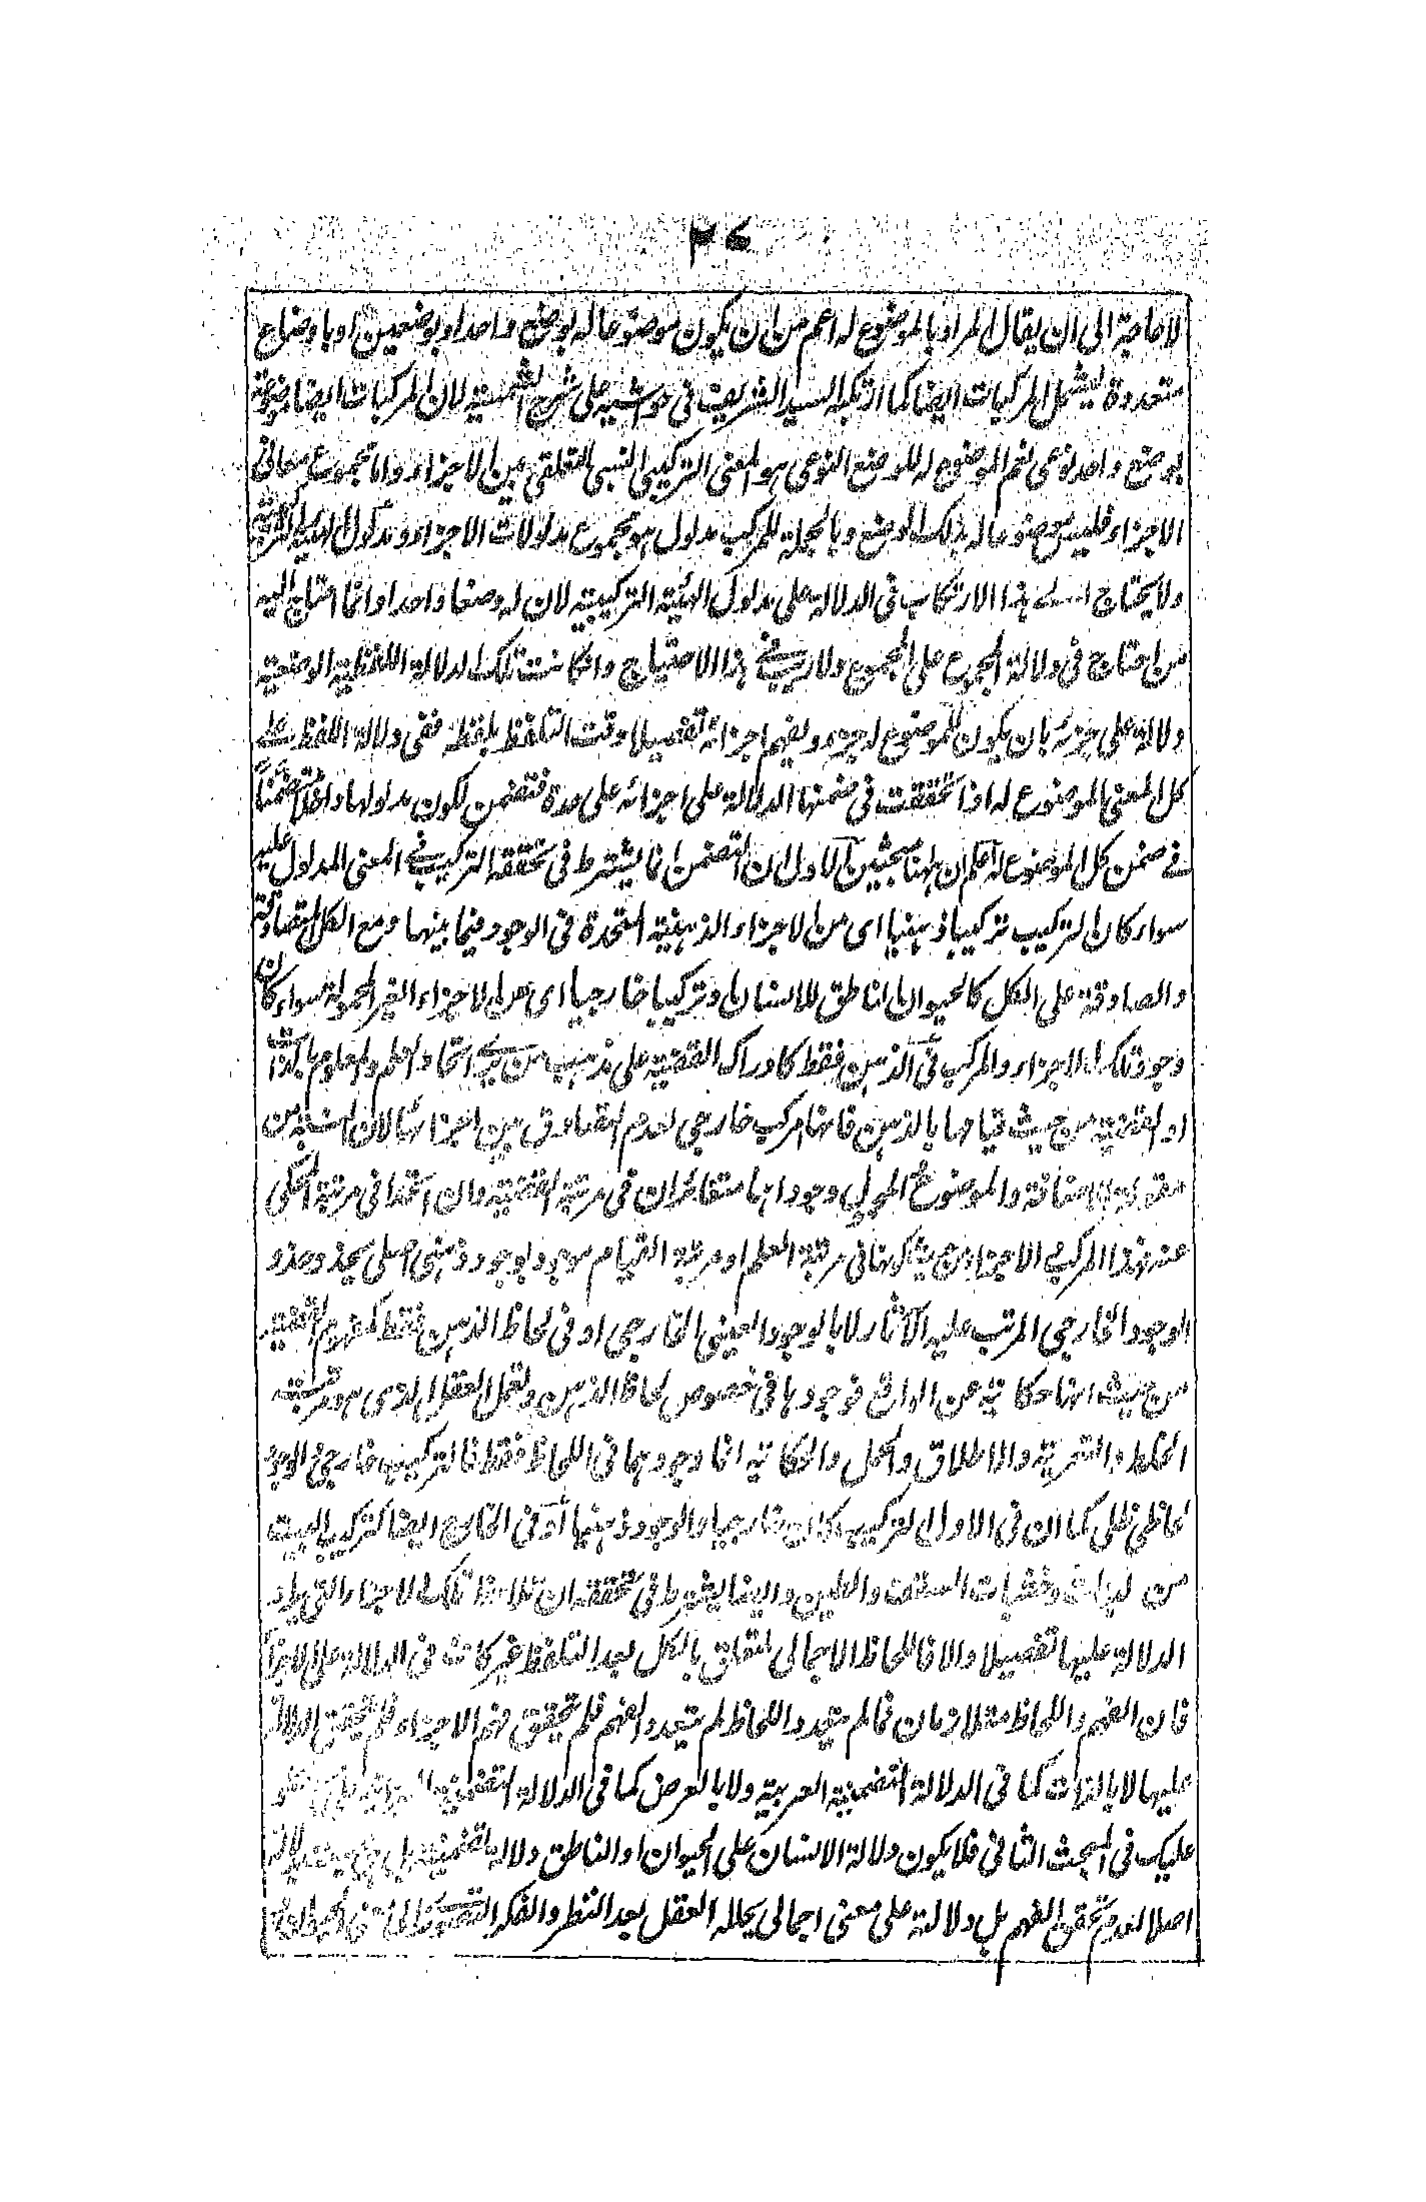 ٢٧
لا حاجة الى ان يقال المراد بالموضوع له اعم من ان يكون موضوعا له بوضع واحد او بوضعين او باوضاع
متعددة ليشمل المركبات ايضا كما ارتكبه السيد الشريف فى حواشيه على شرح الشمسية لان المركبات ايضا موضوعة
بوضع واحد نوعى نعم الموضوع له للوضع النوعى هو المعنى التركيبى النسبى التعلقى بين الاجزاء واما مجموع معانى
الاجزاء فليس موضوعا له بذلك الوضع وبالجملة للمركب مدلول هو مجموع مدلولات الاجزاء ومدلول الهيئة التركيبية
ولا يحتاج الے هذا الارتكاب فى الدلالة على مدلول الهيئة التركيبية لان له وضعا واحدا وانما احتاج اليه
من احتاج فى دلالة المجموع على المجموع ولا ريب فے هذا الاحتياج وان كانت تلك الدلالة اللفظية الوضعية
دلالة على جزئه بان يكون للموضوع له جزء ويفهم اجزائه تفصيلا وقت التلفظ بلفظه ففى دلالة اللفظ علے
كل المعنى الموضوع له اذا تحققت فى ضمنها الدلالة على اجزائه على حدة فتضمن لكون مدلولها داخلا متضمنا
فے ضمن كل الموضوع له اعلم ان ههنا مبحثين الاول ان التضمن انما يشترط فى تحققه التركيب فے المعنى المدلول عليه
سواء كان التركيب تركيبا ذهنيا اى من الاجزاء الذهنية المتحدة فى الوجود فيما بينها ومع الكل المتصادقة
والصادقة على الكل كالحيوان الناطق للانسان او تركيبا خارجيا اى من الاجزاء الغير المحمولة سواء كان
وجود تلك الاجزاء والمركب فى الذهن فقط كادراك القضية على مذهب من يرے اتحاد العلم والمعلوم بالذات
او القضية من حيث قيامها بالذهن فانها مركب خارجى لعدم التصادق بين اجزائها لان النسبة من
مقولة الاضافة والموضوع والمحمول وجوداهما متغائران فى مرتبة القضية وان اتحدا فى مرتبة المحكى
عنه فهذا المركب الاجزاء من حيث كونها فى مرتبة العلم او مرتبة القيام موجود بوجود ذهنى اصلى يحذو حذو
الوجود الخارجى المرتب عليه الآثار لا بالوجود العينى الخارجى او فى لحاظ الذهن فقط كمفهوم القضية
من حيث انها حكاية عن الواقع فوجودها فى خصوص لحاظ الذهن وتعمل العقل الذى هو مرتبة
الخلط والتعرية والاطلاق والحمل والحكاية انما وجودهما فى اللحاظ فقط فالتركيب خارجى والوجود
لحاظى ظلى كما ان فى الاول التركيب كان خارجيا والوجود ذهنيا او فى الخارج ايضا كتركيب البيت
من لبنات وخشبات السقف والطين وايضا يشترط فى تحققه ان تلاحظ تلك الاجزاء التى يراد
الدلالة عليها تفصيلا والا فاللحاظ الاجمالى المتعلق بالكل بعد التلفظ غير كاف فى الدلالة على الاجزاء
فان الفهم واللحاظ متلازمان فما لم يتعدد اللحاظ لم يتعدد الفهم فلم يتحقق فهم الاجزاء فلم يتحقق الدلالة
عليها لا بالذات كما فى الدلالة التضمنية العربية ولا بالعرض كما فى الدلالة التضمنية
عليك فى المبحث الثانى فلا يكون دلالة الانسان على الحيوان او الناطق دلالة تضمنية
اصلا لعدم تحقق الفهم بل دلالة على معنى اجمالى يحلله العقل بعد النظر والفكر